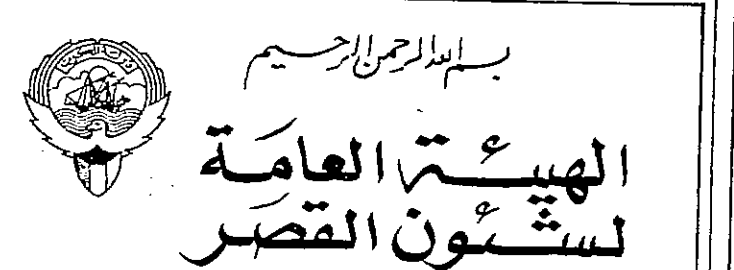 بسم الله الرحمن الرحيم
الهيئة العامة
لشئون القصر